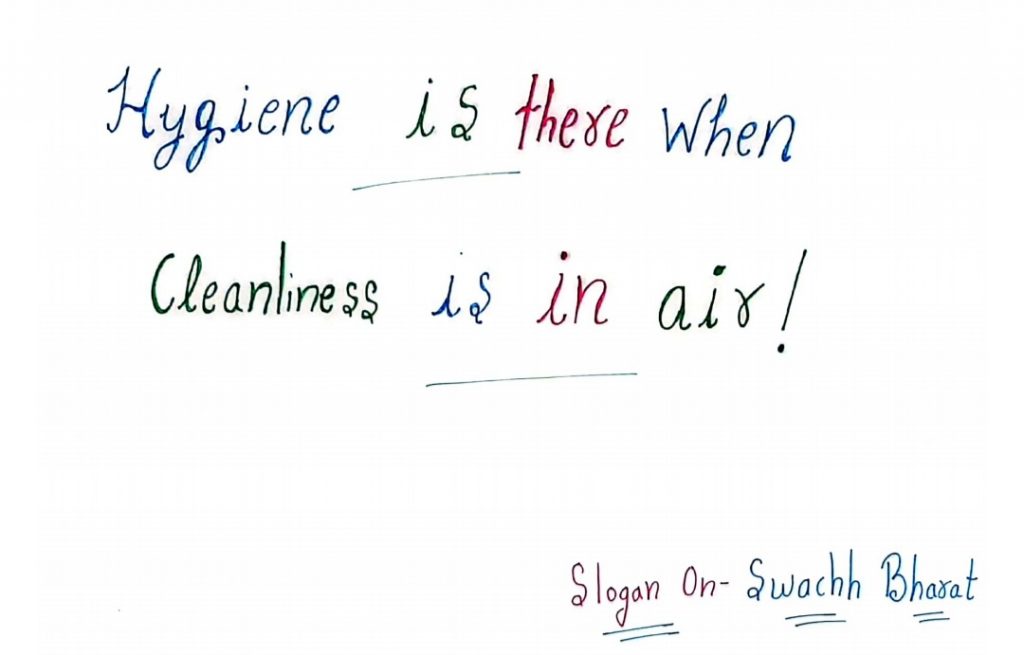 Hygiene is there when
Cleanliness is in air!
Slogan On- Swachh Bharat